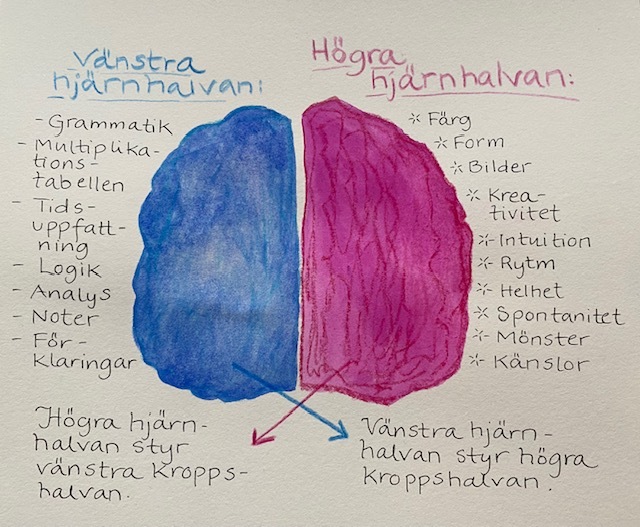 Vänstra
hjärnhalvan:
- Grammatik
- Multiplika-
tions-
tabellen
- Tids-
uppfatt-
ning
- Logik
- Analys
- Noter
- För-
klaringar
Högra
hjärnhalvan:
Färg
Form
Bilder
Krea-
tivitet
Intuition
Rytm
Helhet
Spontanitet
Mönster
Känslor
Högra hjärn-
halvan styr
vänstra kropps-
halvan.
Vänstra hjärn-
halvan styr högra
kroppshalvan.